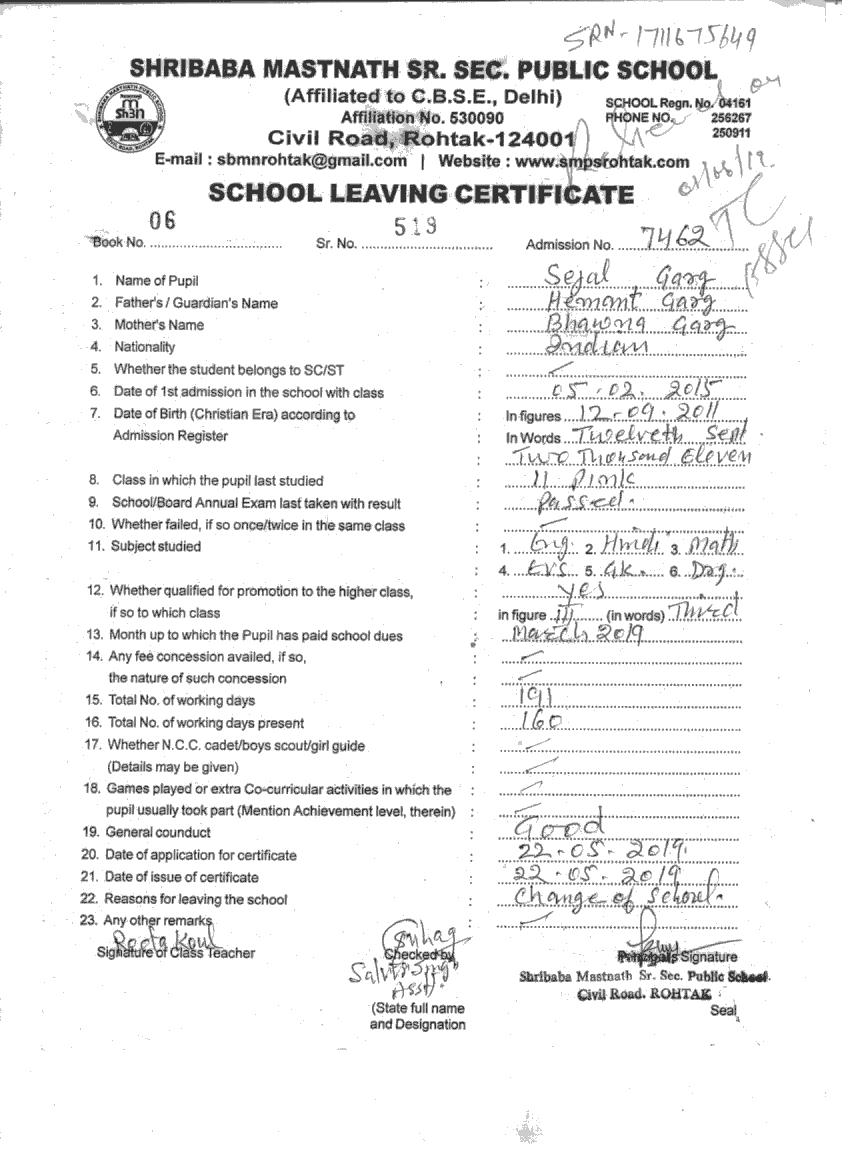 SRN-1711675649
SHRIBABA MASTNATH SR. SEC. PUBLIC SCHOOL
(Affiliated to C.B.S.E., Delhi)
Affiliation No. 530090
Civil Road, Rohtak-124001
SCHOOL Regn. No. 04161
PHONE NO. 256267
250911
E-mail : sbmnrohtak@gmail.com | Website : www.smpsrohtak.com
SCHOOL LEAVING CERTIFICATE
TC
Book No. 06 Sr. No. 519 Admission No. 7462
1. Name of Pupil : Sejal Garg
2. Father's / Guardian's Name : Hemant Garg
3. Mother's Name : Bhawna Garg
4. Nationality : Indian
5. Whether the student belongs to SC/ST :
6. Date of 1st admission in the school with class : 05-02. 2015
7. Date of Birth (Christian Era) according to : In figures 12-09-2011
Admission Register : In Words Twelveth Sept.
: Two Thousand Eleven
8. Class in which the pupil last studied : II Pink
9. School/Board Annual Exam last taken with result : Passed.
10. Whether failed, if so once/twice in the same class :
11. Subject studied : 1. Eng. 2. Hindi 3. Math
: 4. EVS 5. G.K. 6. Dog.
12. Whether qualified for promotion to the higher class, : yes
if so to which class in figure III (in words) Third
13. Month up to which the Pupil has paid school dues : March 2019
14. Any fee concession availed, if so, :
the nature of such concession :
15. Total No. of working days : 191
16. Total No. of working days present : 160
17. Whether N.C.C. cadet/boys scout/girl guide :
(Details may be given) :
18. Games played or extra Co-curricular activities in which the :
pupil usually took part (Mention Achievement level, therein) :
19. General counduct : Good
20. Date of application for certificate : 22-05-2019.
21. Date of issue of certificate : 22-05-2019
22. Reasons for leaving the school : Change of School.
23. Any other remarks :
Reeta Koul
Signature of Class Teacher
Checked by
Principal's Signature
Asst.
Shribaba Mastnath Sr. Sec. Public School
Civil Road. ROHTAK
(State full name
and Designation
Seal